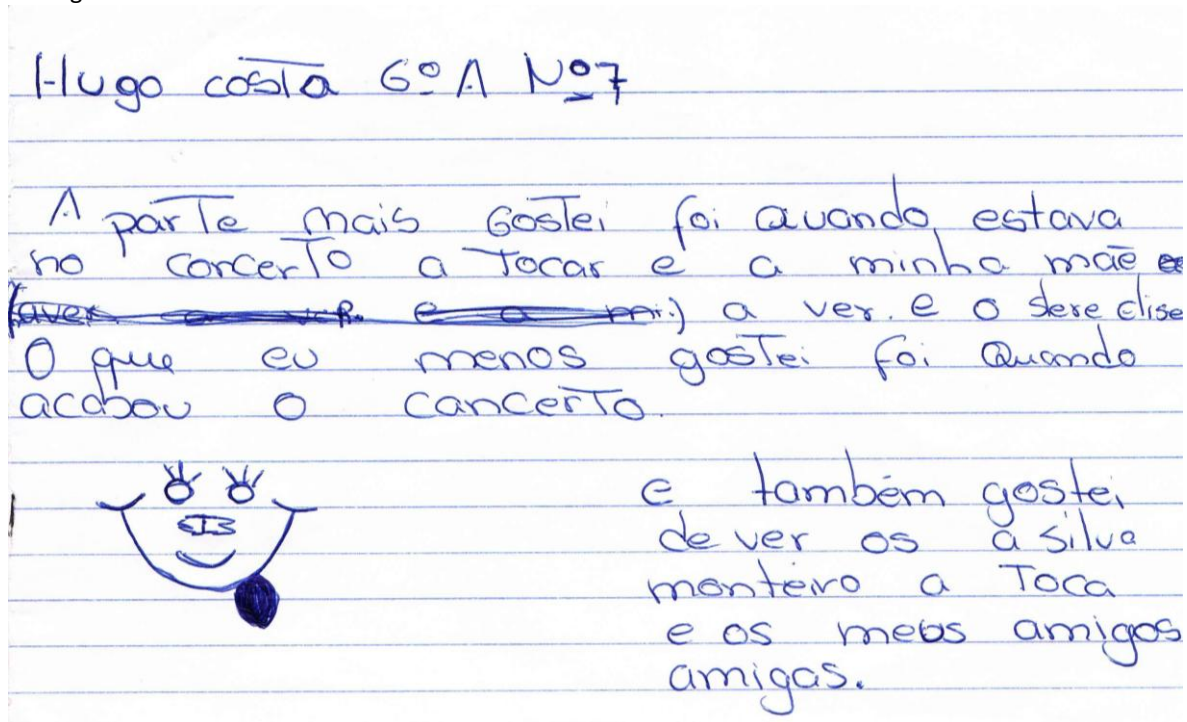 Hugo costa 6º A Nº7
A parte mais Gostei foi Quando, estava
no concerto a Tocar e a minha mãe
a ver. e o
O que eu menos gostei foi Quando
acabou o cancerto.
e também gostei
de ver os a silva
monteiro a Toca
e os meus amigos
amigas.